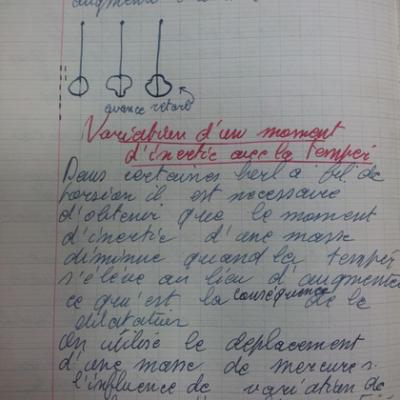 augmente
avance retard
Variation d'un moment
d'inertie avec la temper
Dans certaines horl à fil de
torsion il est nécessaire
d'obtenir que le moment
d'inertie d'une masse
diminue quand la temper
s'élève au lieu d'augmenter
ce qu'est la conséquence de la
dilatation
On utilise le déplacement
d'une masse de mercure s.
l'influence de variation de